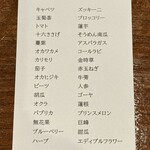 キャベツ
玉葱
トマト
十六ささげ
オカワカメ
カイワリ
茄子
オカヒジキ
ピーツ
胡瓜
オクラ
パプリカ
無花果
ブルーベリー
ハーブ
ズッキーニ
ブロッコリー
蓮芋
そうめん南瓜
アスパラガス
コールラビ
金時草
赤玉ねぎ
牛蒡
人参
ゴーヤ
蓮根
プリンスメロン
巨峰
甜瓜
エディブルフラワー